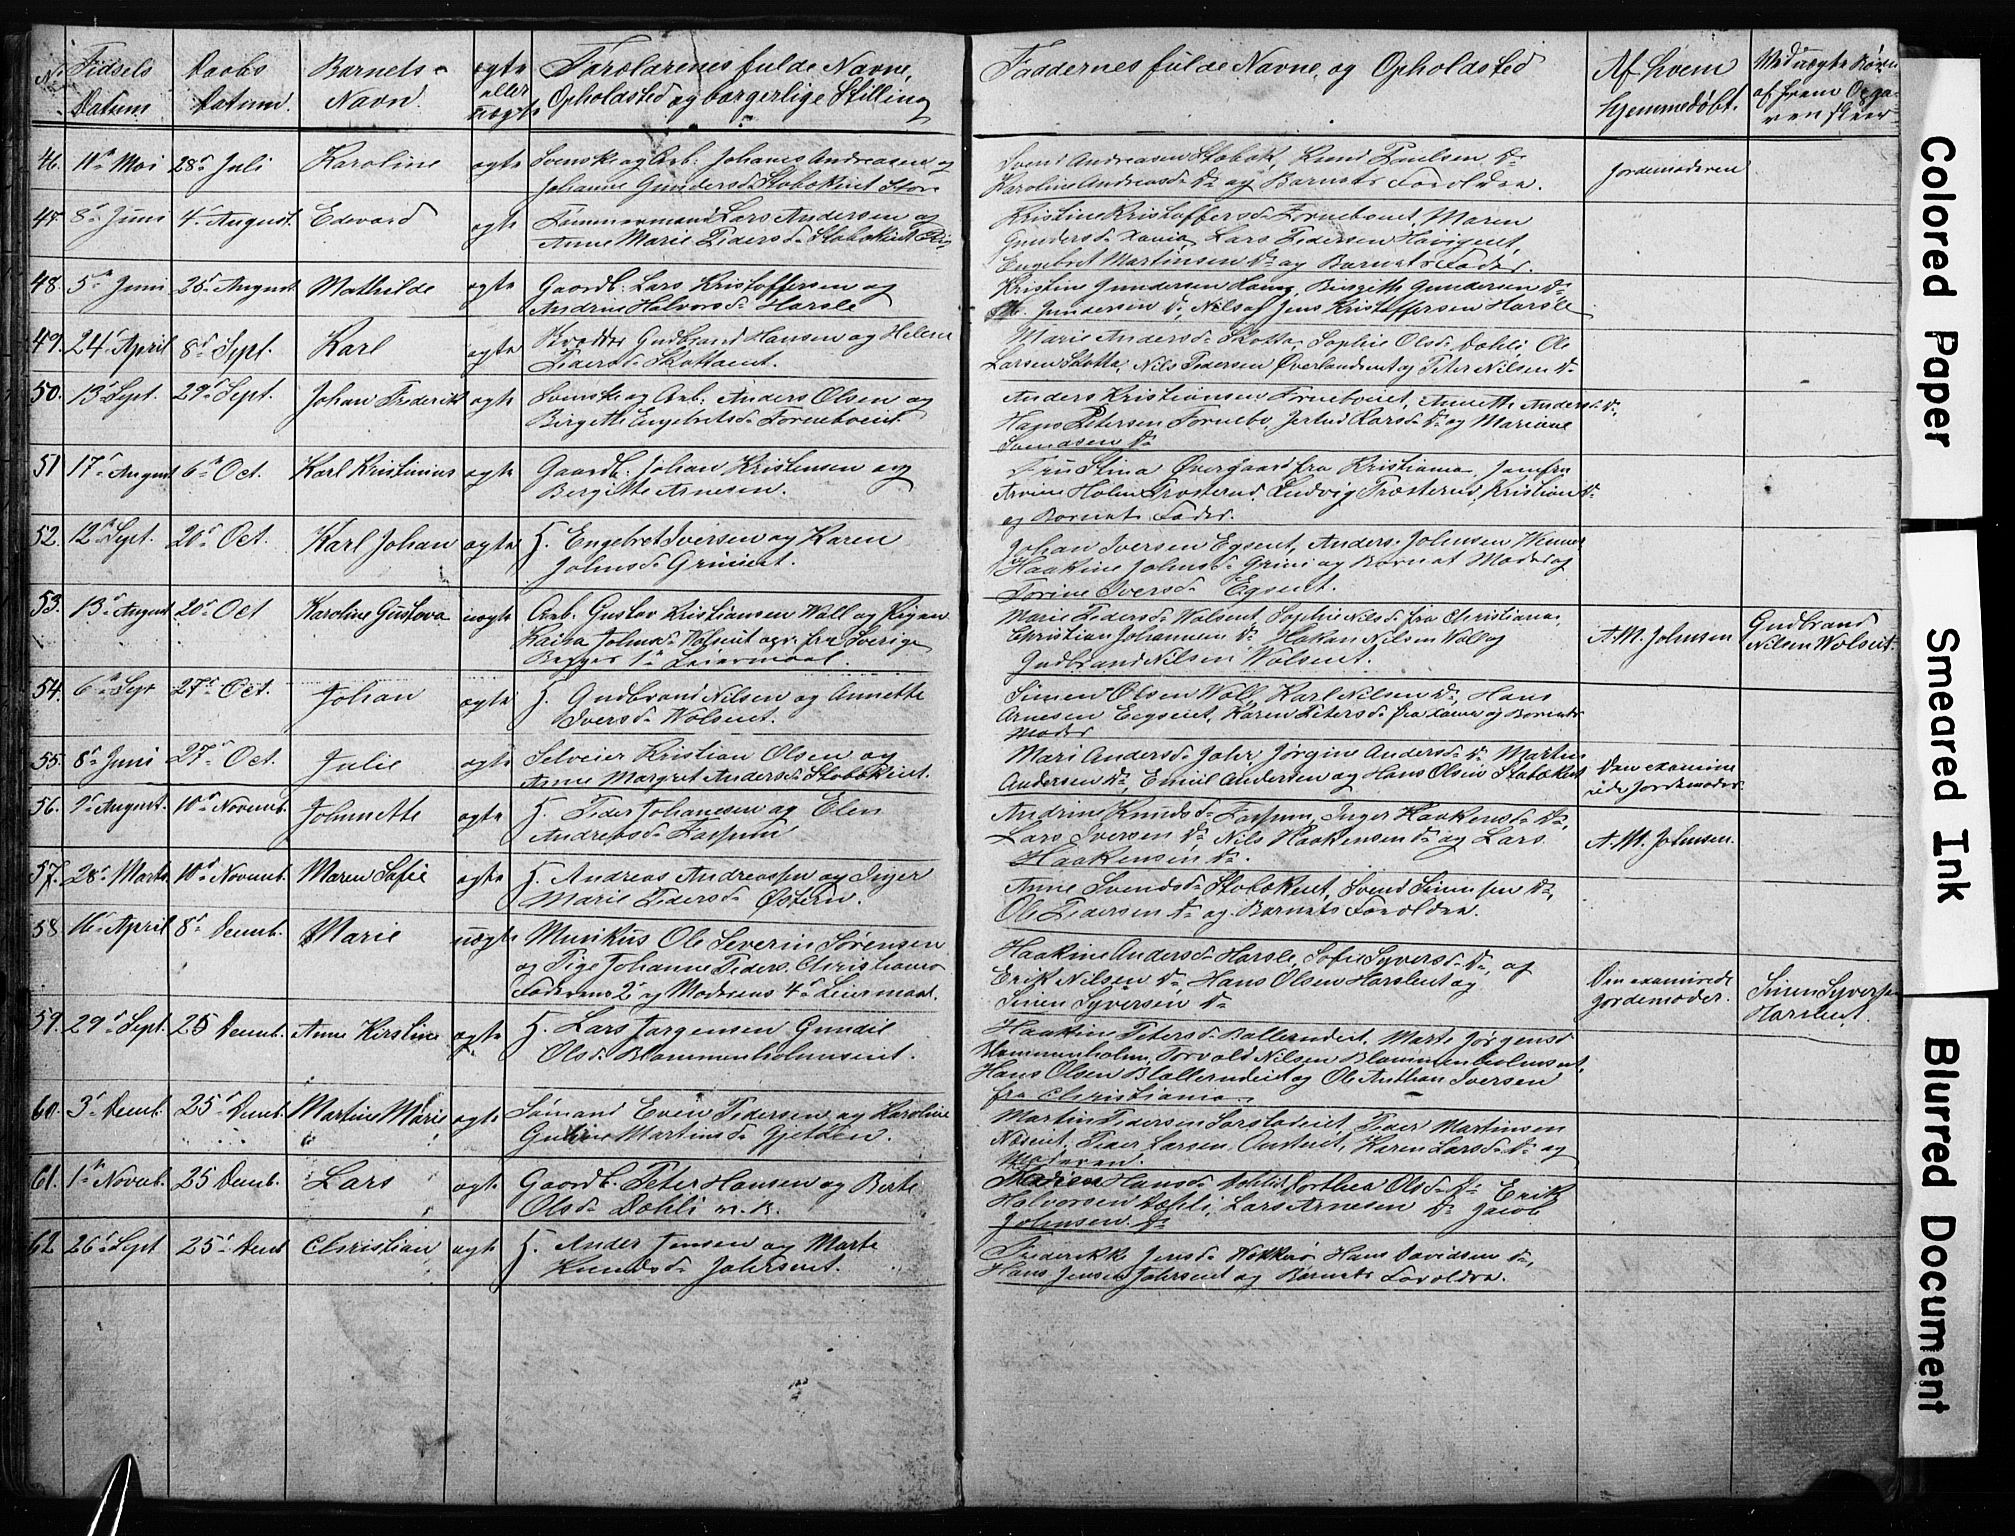 No Fødsels Daabs Barnets ægte Forældrenes fulde Navne,
Datum Datum. Navn. eller Opholdsted og borgerlige Stilling
uægte
Faddernes fulde Navne, og Opholdsted Af hvem Ved uægte Børn
hjemmedøbt. af hvem Opga-
ven skeer
46. 11te Mai 28d Juli Karoline ægte Svenske og Arb: Johanes Andreasen og
Johanne Gundersd. Stobækeiet
Svend Andreasen Stobæk, Paulsen Do
Karoline Andreasd. Do og Barnets Forældre. Jordemoderen
8d Juni 4d August. Edevard ægte Tømmermand Lars Andersen og
Anne Marie Pedersd. Stobækeiet
Kristine Kristoffersd. Forneboeiet, Maren
Gundersd. Lars Pedersen
Engebret Martinsen Do og Barnets Fader.
48. 5te Juni 25d August Mathilde ægte Gaardb: Lars Kristoffersen og
Andrine Halvorsd. Harsle
Kristine Gundersen Birgette Gundersen Do
Gundersen Do, Nils og Jens Kristoffersen Harsle
49. 24d April 8d Sept. Karl ægte Gudbrand Hansen og Helene
Pedersd.
Marie Andersd. Sophie Olsd. Dahli, Ole
Larsen Nils Pedersen Øverlandseiet og Peter Nilsen Do
50. 13d Sept. 29d Sept. Johan Frederik ægte Svenske og Arb: Anders Olsen og
Birgette Engebretsd. Forneboeiet
Anders Kristiansen Forneboeiet, Annette Andersd. Do,
Hans Petersen Fornebo, Larsd. Do og Mariane
Svendsen Do
51 17d August 6te Oct. Karl Kristinius ægte Gaardb: Johan Kristensen og
Bergitte Arnesen.
Fru Stina Øvergaard fra Kristiania, Jomfru
Holm Ludvig Kristian Do
og Barnets Fader.
52. 12te Sept. 20d Oct. Karl Johan ægte H. Engebret Iversen og Karen
Johnsd. Grinieiet.
Johan Iversen Egseiet, Anders Johnsen
Haakine Johnsd. Grini og Barnets Moder og
Torine Iversd. Egseiet.
53. 13d August 20d Oct Karoline Gustava uægte Arb. Gustav Kristiansen Wøll og Pigen
Kaisa Johnsd. Wølseiet fra Sverige
Begges 1te Leiermaal.
Marie Pedersd. Wølseiet, Sophie Nilsd. fra Christiania,
Christian Johannesen Do, Hakan Nilsen Wøll og
Gudbrand Nilsen Wølseiet. A. M. Johnsen Gudbrand
Nilsen Wølseiet.
54. 6te Sept 27d Oct. Johan ægte H. Gudbrand Nilsen og Annette
Iversd. Wølseiet.
Simen Olsen Wøll, Karl Nilsen Do, Hans
Arnesen Egseiet, Karen Petersd. fra og Barnets
Moder
55. 8d Juni 27d Oct. Julie ægte Selveier Kristian Olsen og
Anne Margret Andersd. Stobækeiet.
Mari Andersd. Jahr, Jørgine Andersd. Do, Martin
Andersen Do, Emiil Andersen og Hans Olsen Stobækeiet Den examine
rede Jordemoder.
56. August. 10d Novemb. Johnette ægte H. Peder Johanesen og Elen
Andreasd.
Andrine Knudsd. Inger Haakensd. Do,
Lars Iversen Do, Nils Haakensen Do og Lars
Haakensen Do. A. M. Johnsen.
57. 28d Marts 10d Novemb. Maren Sofie ægte H. Andreas Andreassen og Inger
Marie Pedersd. Østern.
Anne Svendsd. Stobækeiet, Svend Simensen Do,
Ole Pedersen Do og Barnets Forældre.
58 16d April 8d Decemb. Marie uægte Musikus Ole Severin Sørensen
og Pige Johanne Peders. Christiania
Faderens 2d og Moderens 4d Leiermaal.
Haakine Andersd. Harsle, Sofie Syversd. Do, og
Erik Nilsen Do, Hans Olsen Harsleiet og
Simen Syversen Do Den examinerede
Jordemoder. Simen Syversen
Harsleiet.
59. 29d Sept. 25 Decemb. Anne Kirstine ægte H. Lars Jørgensen Gundil
Olsd. Blommenholmseiet.
Haakine Petersd. Ballerudeiet, Marte Jørgensd
Blommenholm, Torvald Nilsen Blommenholmseiet,
Hans Olsen Ballerudeiet og Ole Anthon Iversen
fra Christiania.
60. 3d Decemb. 25d Decemb. Martine Marie ægte Sømand Even Pedersen og Karoline
Martinsd. Gjetøen.
Martin Pedersen Peder Martinsen
Næseiet, Peder Larsen Karen Larsd. Do og
Moderen.
61. 1te Novemb. 25 Decemb. Lars ægte Gaardb. Peter Hansen og Berte
Olsd. Dæhli v. B.
Hansd. Dæhli, Dorthea Olsd. Do Erik
Halvorsen Dæhli, Lars Arnesen Do Jacob
Johnsen Do
62. 26d Sept 25d Decemb Christian ægte H. Ander Jensen og Marte
Knudsd. Jahrseiet.
Frederikke Jensd. Hans Davidsen Do,
Hans Jensen Jahrseiet og Barnets Forældre.
Colored Paper
Smeared Ink
Blurred Document